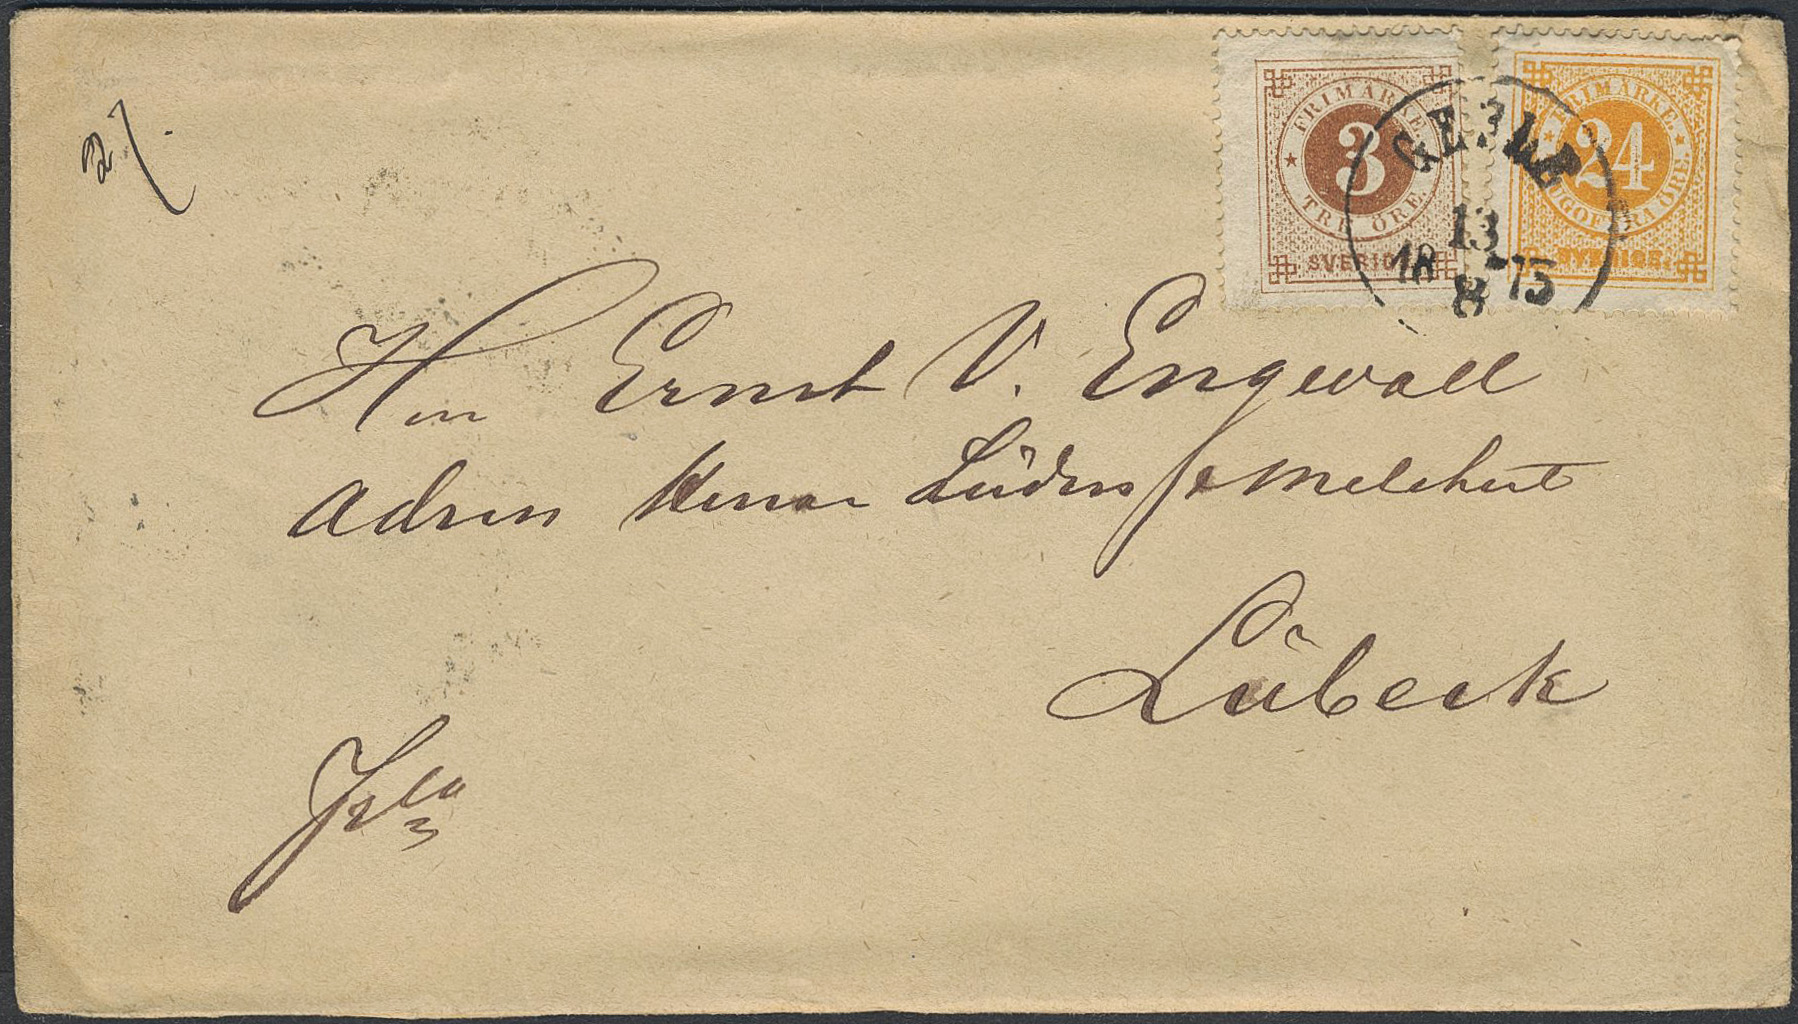 27.
FRIMÄRKE
3
TRE ÖRE.
SVERIGE.
FRIMÄRKE
24
TJUGOFYRA ÖRE.
SVERIGE.
GEFLE
13
18 8 75
Herr Ernst V. Engwall
Adress Herrar Lüders & Melchert
Lübeck